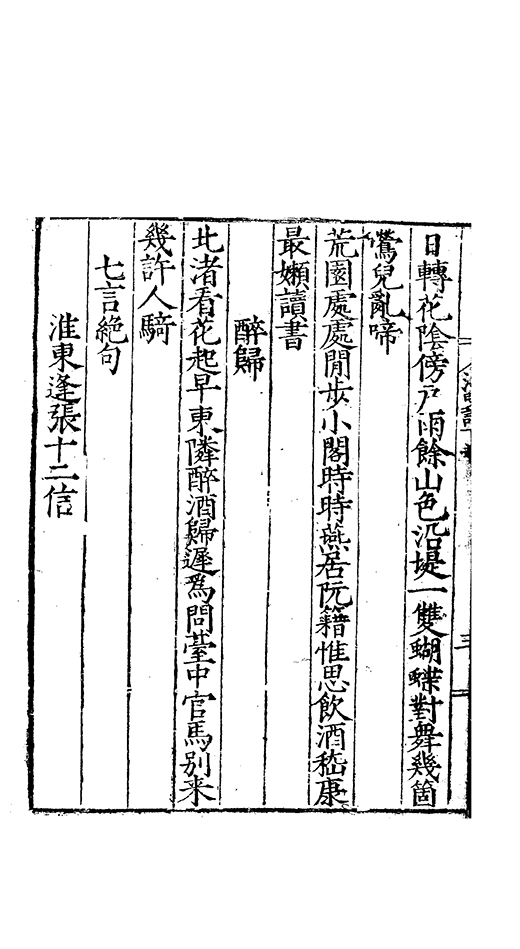 日轉花陰傍戶雨餘山色沿堤一雙蝴蝶對舞幾箇
鶯兒亂啼
荒園處處閒步小閣時時燕居阮籍惟思飲酒嵇康
最嬾讀書
醉歸
北渚看花起早東隣醉酒歸遲爲問臺中官馬別来
幾許人騎
七言絶句
淮東逢張十二信